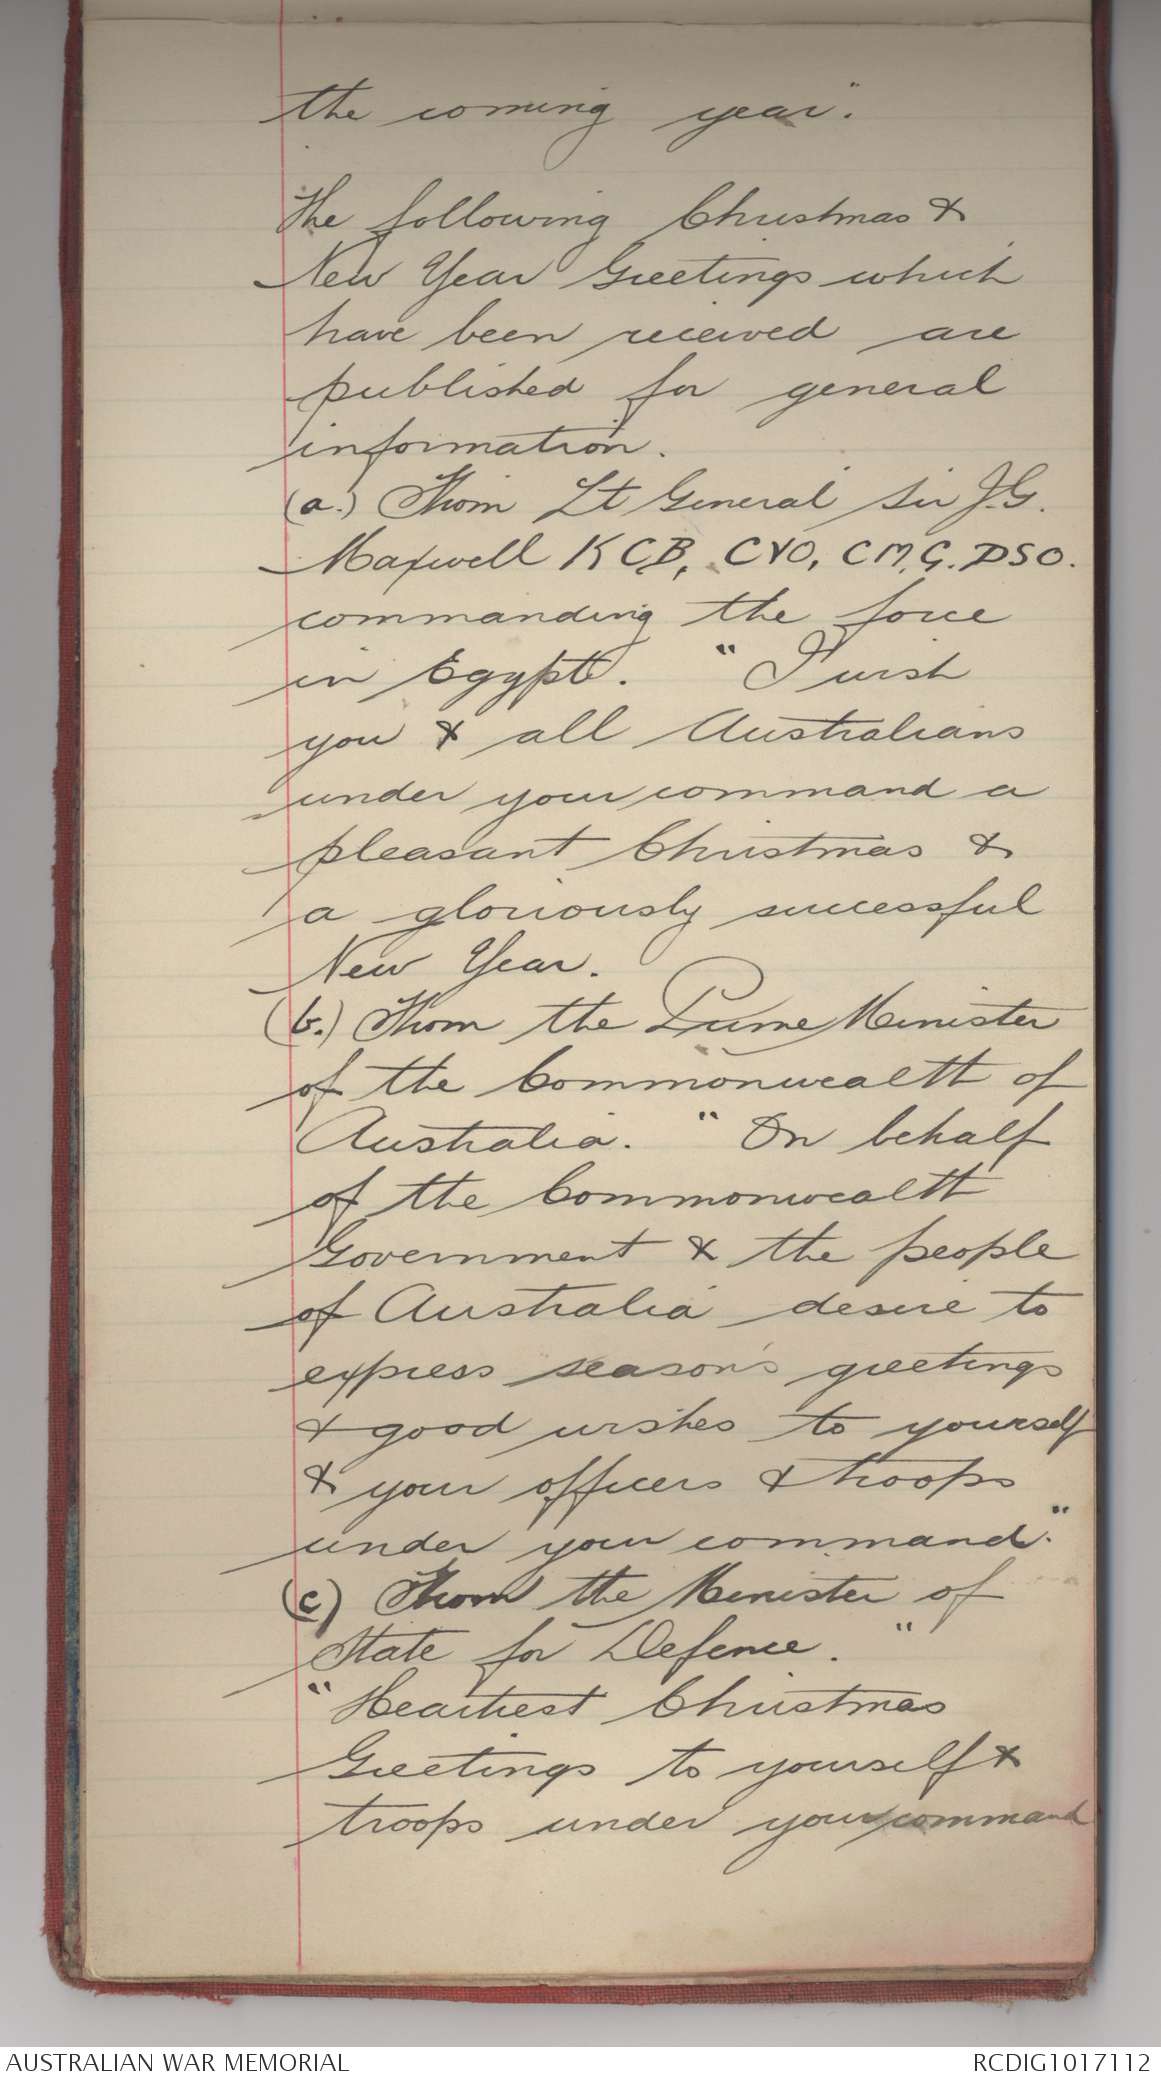 the coming year."
The following Christmas &
New Year Greetings which
have been received are
published for general
information.
(a.) From Lt General Sir J.G.
Maxwell KCB, CVO, CMG. DSO.
commanding the force
in Egypt. "I wish
you & all Australians
under your command a
pleasant Christmas &
a gloriously successful
New Year.
(b.) From the Prime Minister
of the Commonwealth of
Australia. "On behalf
of the Commonwealth
Government & the people
of Australia desire to
express season's greetings
& good wishes to yourself
& your officers & troops
under your command."
(c) From the Minister of
State for Defence. "
"Heartiest Christmas
Greetings to yourself &
troops under your command
AUSTRALIAN WAR MEMORIAL
RCDIG1017112